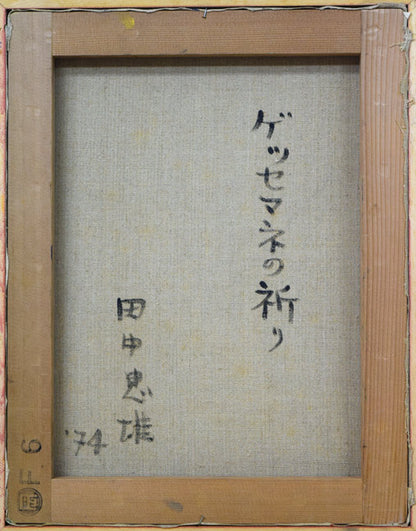 ゲッセマネの祈り
田中忠雄
'74
F 6